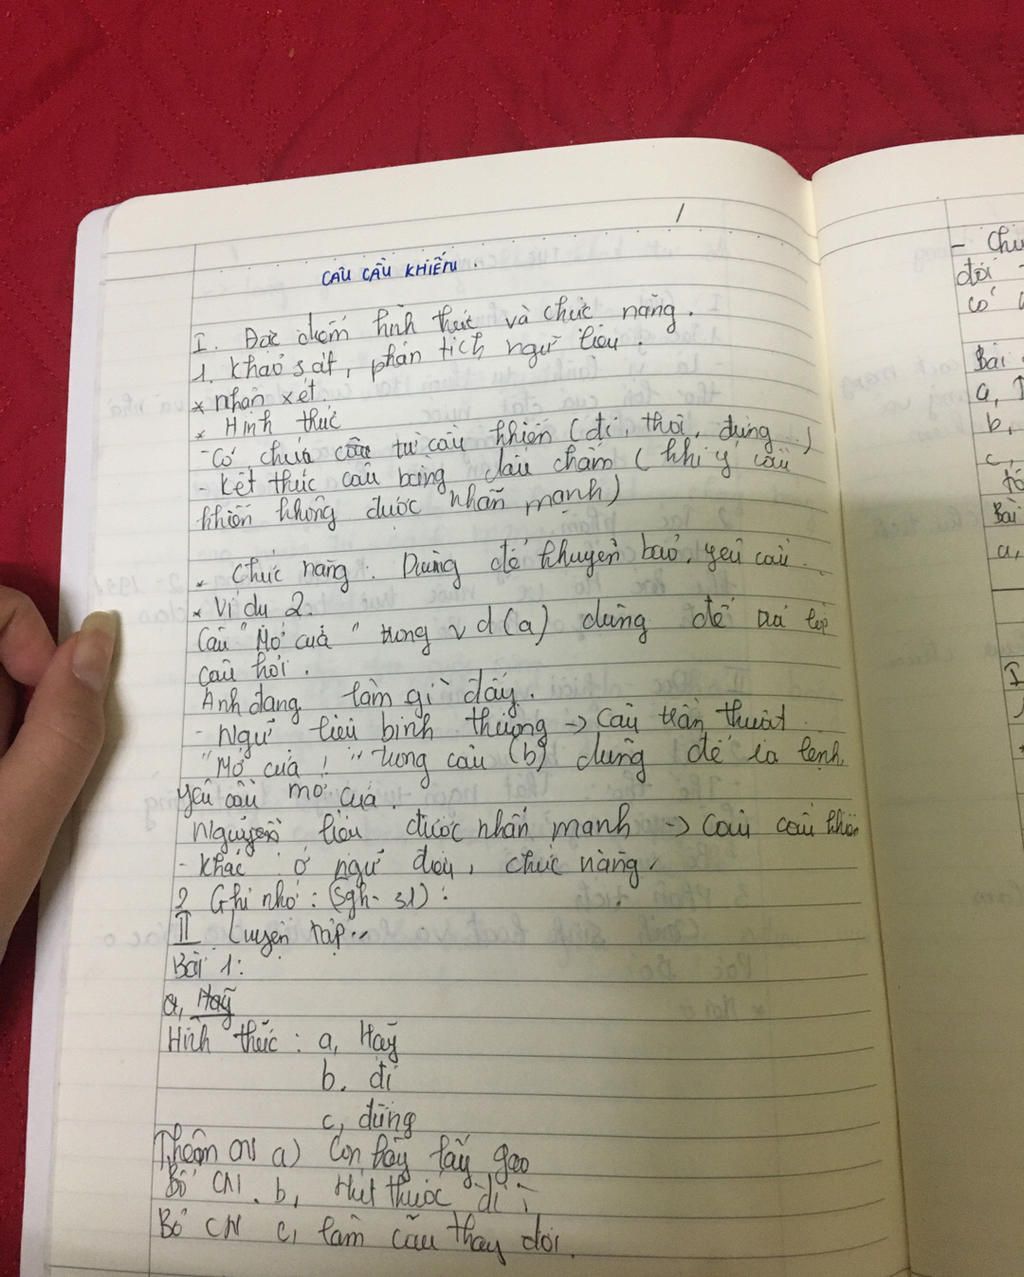 CÂU CẦU KHIẾN.
I. Đặc điểm hình thức và chức năng.
1. Khảo sát, phân tích ngữ liệu.
* Nhận xét.
* Hình thức
- Có chứa các từ cầu khiến (đi, thôi, đừng..)
- Kết thúc câu bằng dấu chấm ( khi ý cầu
khiến không được nhấn mạnh)
* Chức năng: Dùng để khuyên bảo, yêu cầu.
* Ví dụ 2.
Câu "Mở cửa" trong vd(a) dùng để trả lời
câu hỏi.
Anh đang làm gì đấy.
- Ngữ liệu bình thường -> Câu trần thuật.
"Mở cửa!" trong câu (b) dùng để ra lệnh,
yêu cầu mở cửa.
liệu được nhấn mạnh -> Câu cầu khiến
- Khác ở ngữ điệu, chức năng,
2 Ghi nhớ: (Sgk- 31):
II Luyện tập..
Bài 1:
a, Hãy
Hình thức: a, Hãy
b. đi
c, đừng
Thêm CN a) Con hãy lấy gạo
Bỏ CN. b, Hút thuốc đi
Bỏ CN c, thay đổi.
- Chu
đối
có
Bài
a,
b,
c,
Bài
a,
I